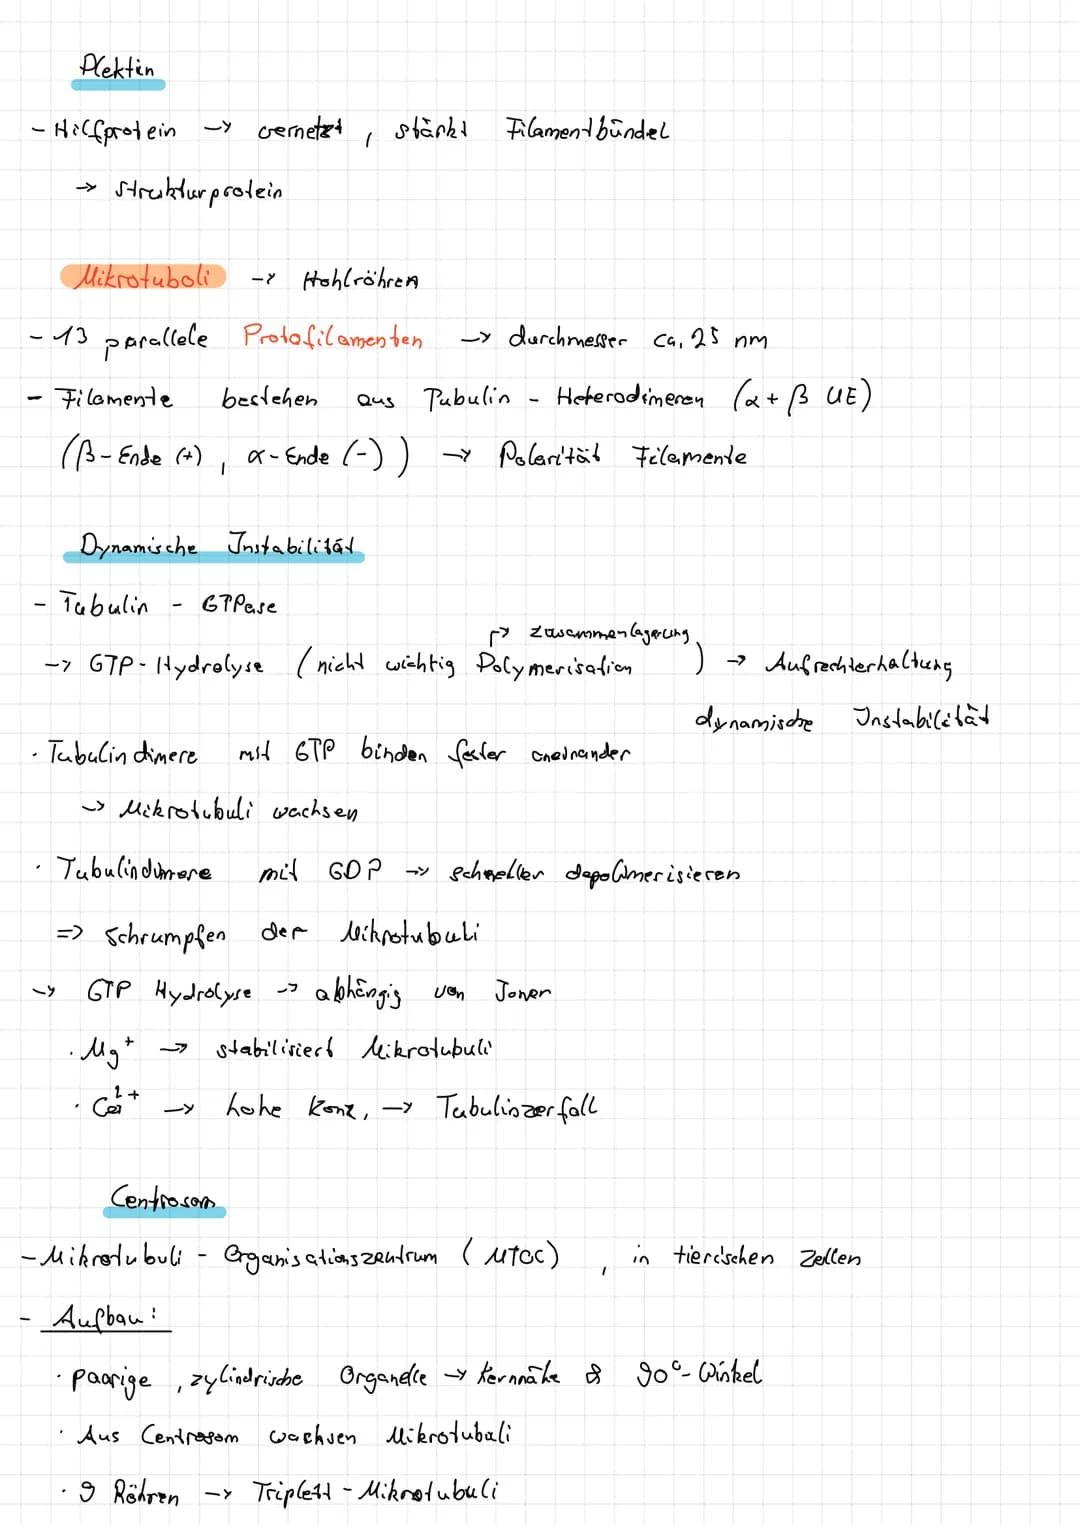 Plektin
- Hilfprotein → vernetzt, stärkt Filamentbündel
→ Strukturprotein
Mikrotuboli → Hohlröhren
- 13 parallele Protofilamenten → durchmesser ca. 25 nm
- Filamente bestehen aus Tubulin - Heterodimeren (α + β UE)
(β-Ende (+), α-Ende (-)) → Polarität Filamente
Dynamische Instabilität
- Tubulin - GTPase
→ Zusammenlagerung
→ GTP-Hydrolyse (nicht wichtig Polymerisation) → Aufrechterhaltung
dynamische Instabilität
· Tubulindimere mit GTP binden fester aneinander
→ Mikrotubuli wachsen
· Tubulindimere mit GDP → schneller depolimerisieren
=> Schrumpfen der Mikrotubuli
→ GTP Hydrolyse → abhängig von Jonen
· Mg⁺ → stabilisiert Mikrotubuli
· Ca²⁺ → hohe Konz. → Tubulinzerfall
Centrosom
- Mikrotubuli - Organisationszentrum (MTOC), in tierischen Zellen
- Aufbau:
· paarige, zylindrische Organelle → Kernnähe & 90°-Winkel
· Aus Centrosom wachsen Mikrotubuli
· 9 Röhren → Triplett-Mikrotubuli